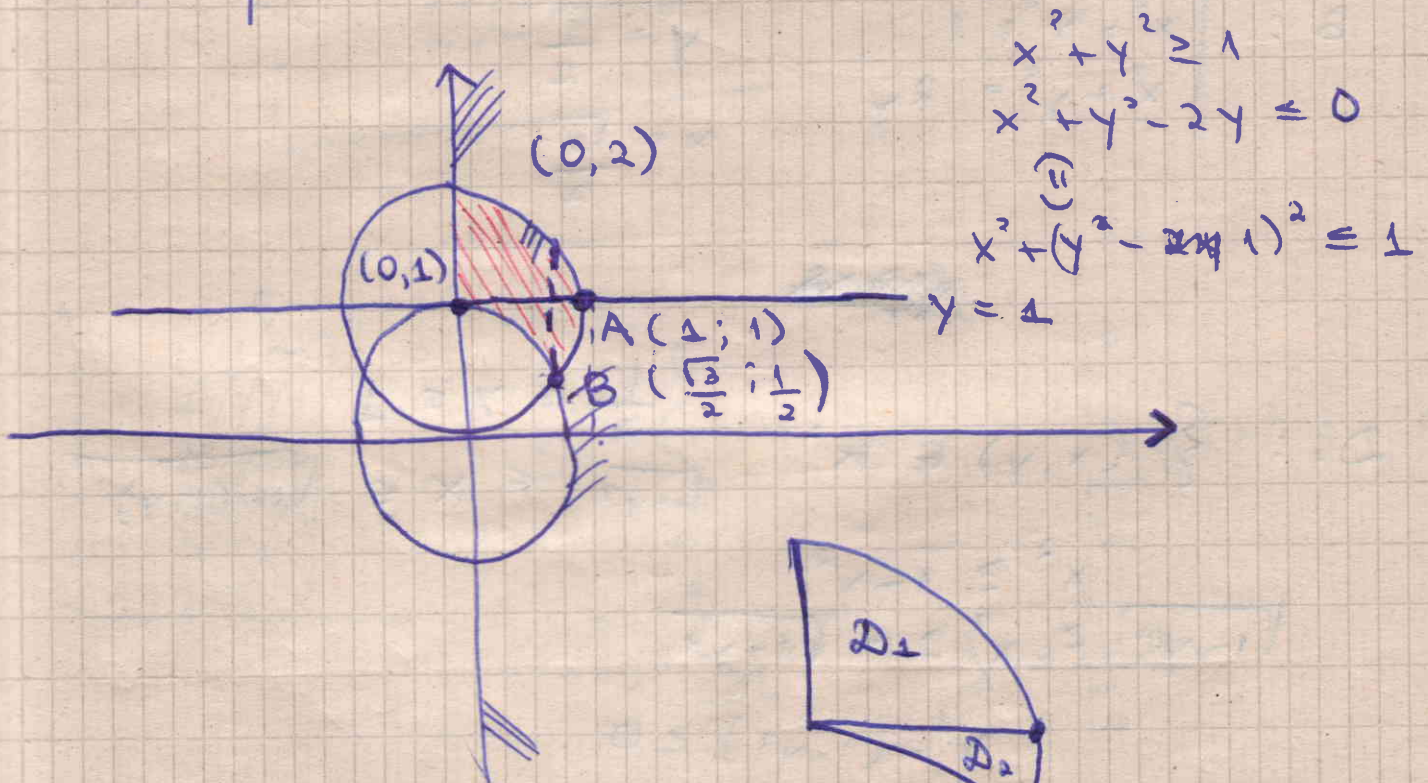 x² + y² ≥ 1
x² + y² - 2y ≤ 0
(=)
x² + (y - 1)² ≤ 1
y = 1
(0,2)
(0,1)
A (1; 1)
B (√3/2 ; 1/2)
D1
D2